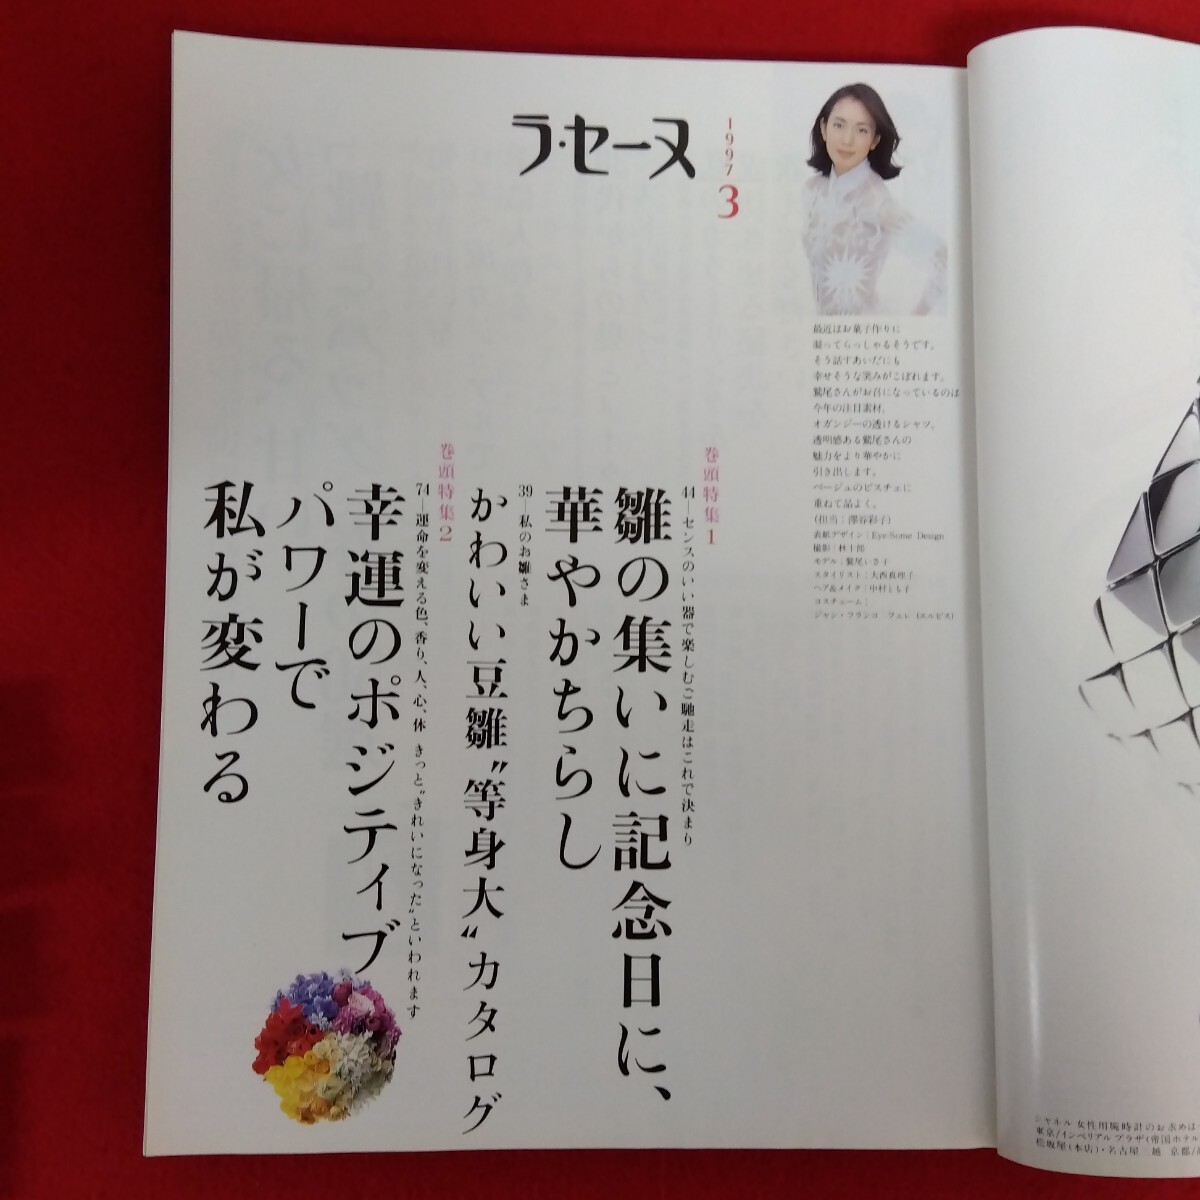 ラ・セーヌ
1997
3
最近はお菓子作りに
凝ってらっしゃるそうです。
そう話すあいだにも
幸せそうな笑みがこぼれます。
鷲尾さんがお召になっているのは
今年の注目素材、
オガンジーの透けるシャツ。
透明感ある鷲尾さんの
魅力をより華やかに
引き出します。
ベージュのビスチェに
重ねて品よく。
(担当:澤谷彩子)
表紙デザイン:Eye-Some Design
撮影:林十郎
モデル:鷲尾いさ子
スタイリスト:大西真理子
ヘア&メイク:中村とも子
コスチューム:
ジャン・フランコ フェレ(エルビス)
巻頭特集1
44―センスのいい器で楽しむご馳走はこれで決まり
雛の集いに記念日に、
華やかちらし
39―私のお雛さま
かわいい豆雛“等身大”カタログ
巻頭特集2
74―運命を変える色、香り、人、心、体 きっと“きれいになった”といわれます
幸運のポジティブ
パワーで
私が変わる
シャネル 女性用腕時計のお求めは
東京/インペリアル プラザ(帝国ホテル
松坂屋(本店)・名古屋 越 京都/